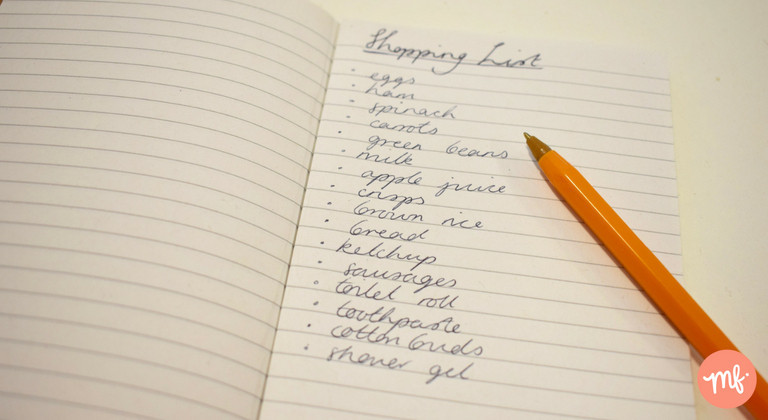 Shopping List
· eggs
· ham
· spinach
· carrots
· green beans
· milk
· apple juice
· crisps
· brown rice
· bread
· ketchup
· sausages
· toilet roll
· toothpaste
· cotton buds
· shower gel
mf.